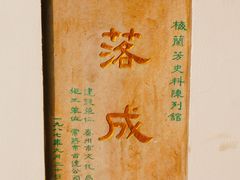 梅蘭芳史料陳列館
落成
建設单位 泰州市文化局
施工单位 常熟市古建公司
一九八七年九月二十